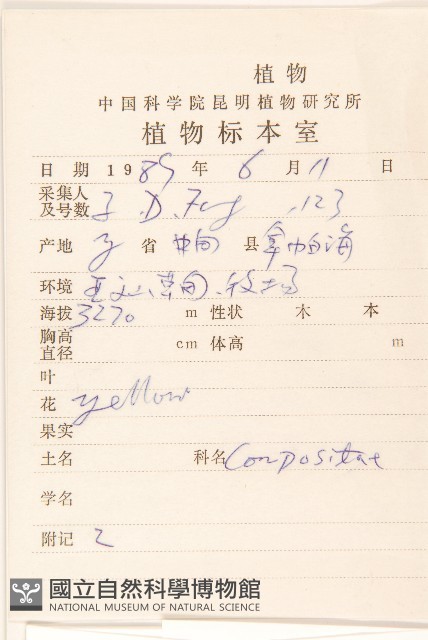 植物
中国科学院昆明植物研究所
植物标本室
日 期 1989 年 6 月 11 日
采集人
及号数 D. 123
产地 省 中甸 县 拿帕海
环境 亚高山草甸 牧场
海拔 3270 m 性状 木 本
胸高
直径 cm 体高 m
叶
花 yellow
果实
土名 科名 Compositae
学名
附记 2
國立自然科學博物館
NATIONAL MUSEUM OF NATURAL SCIENCE